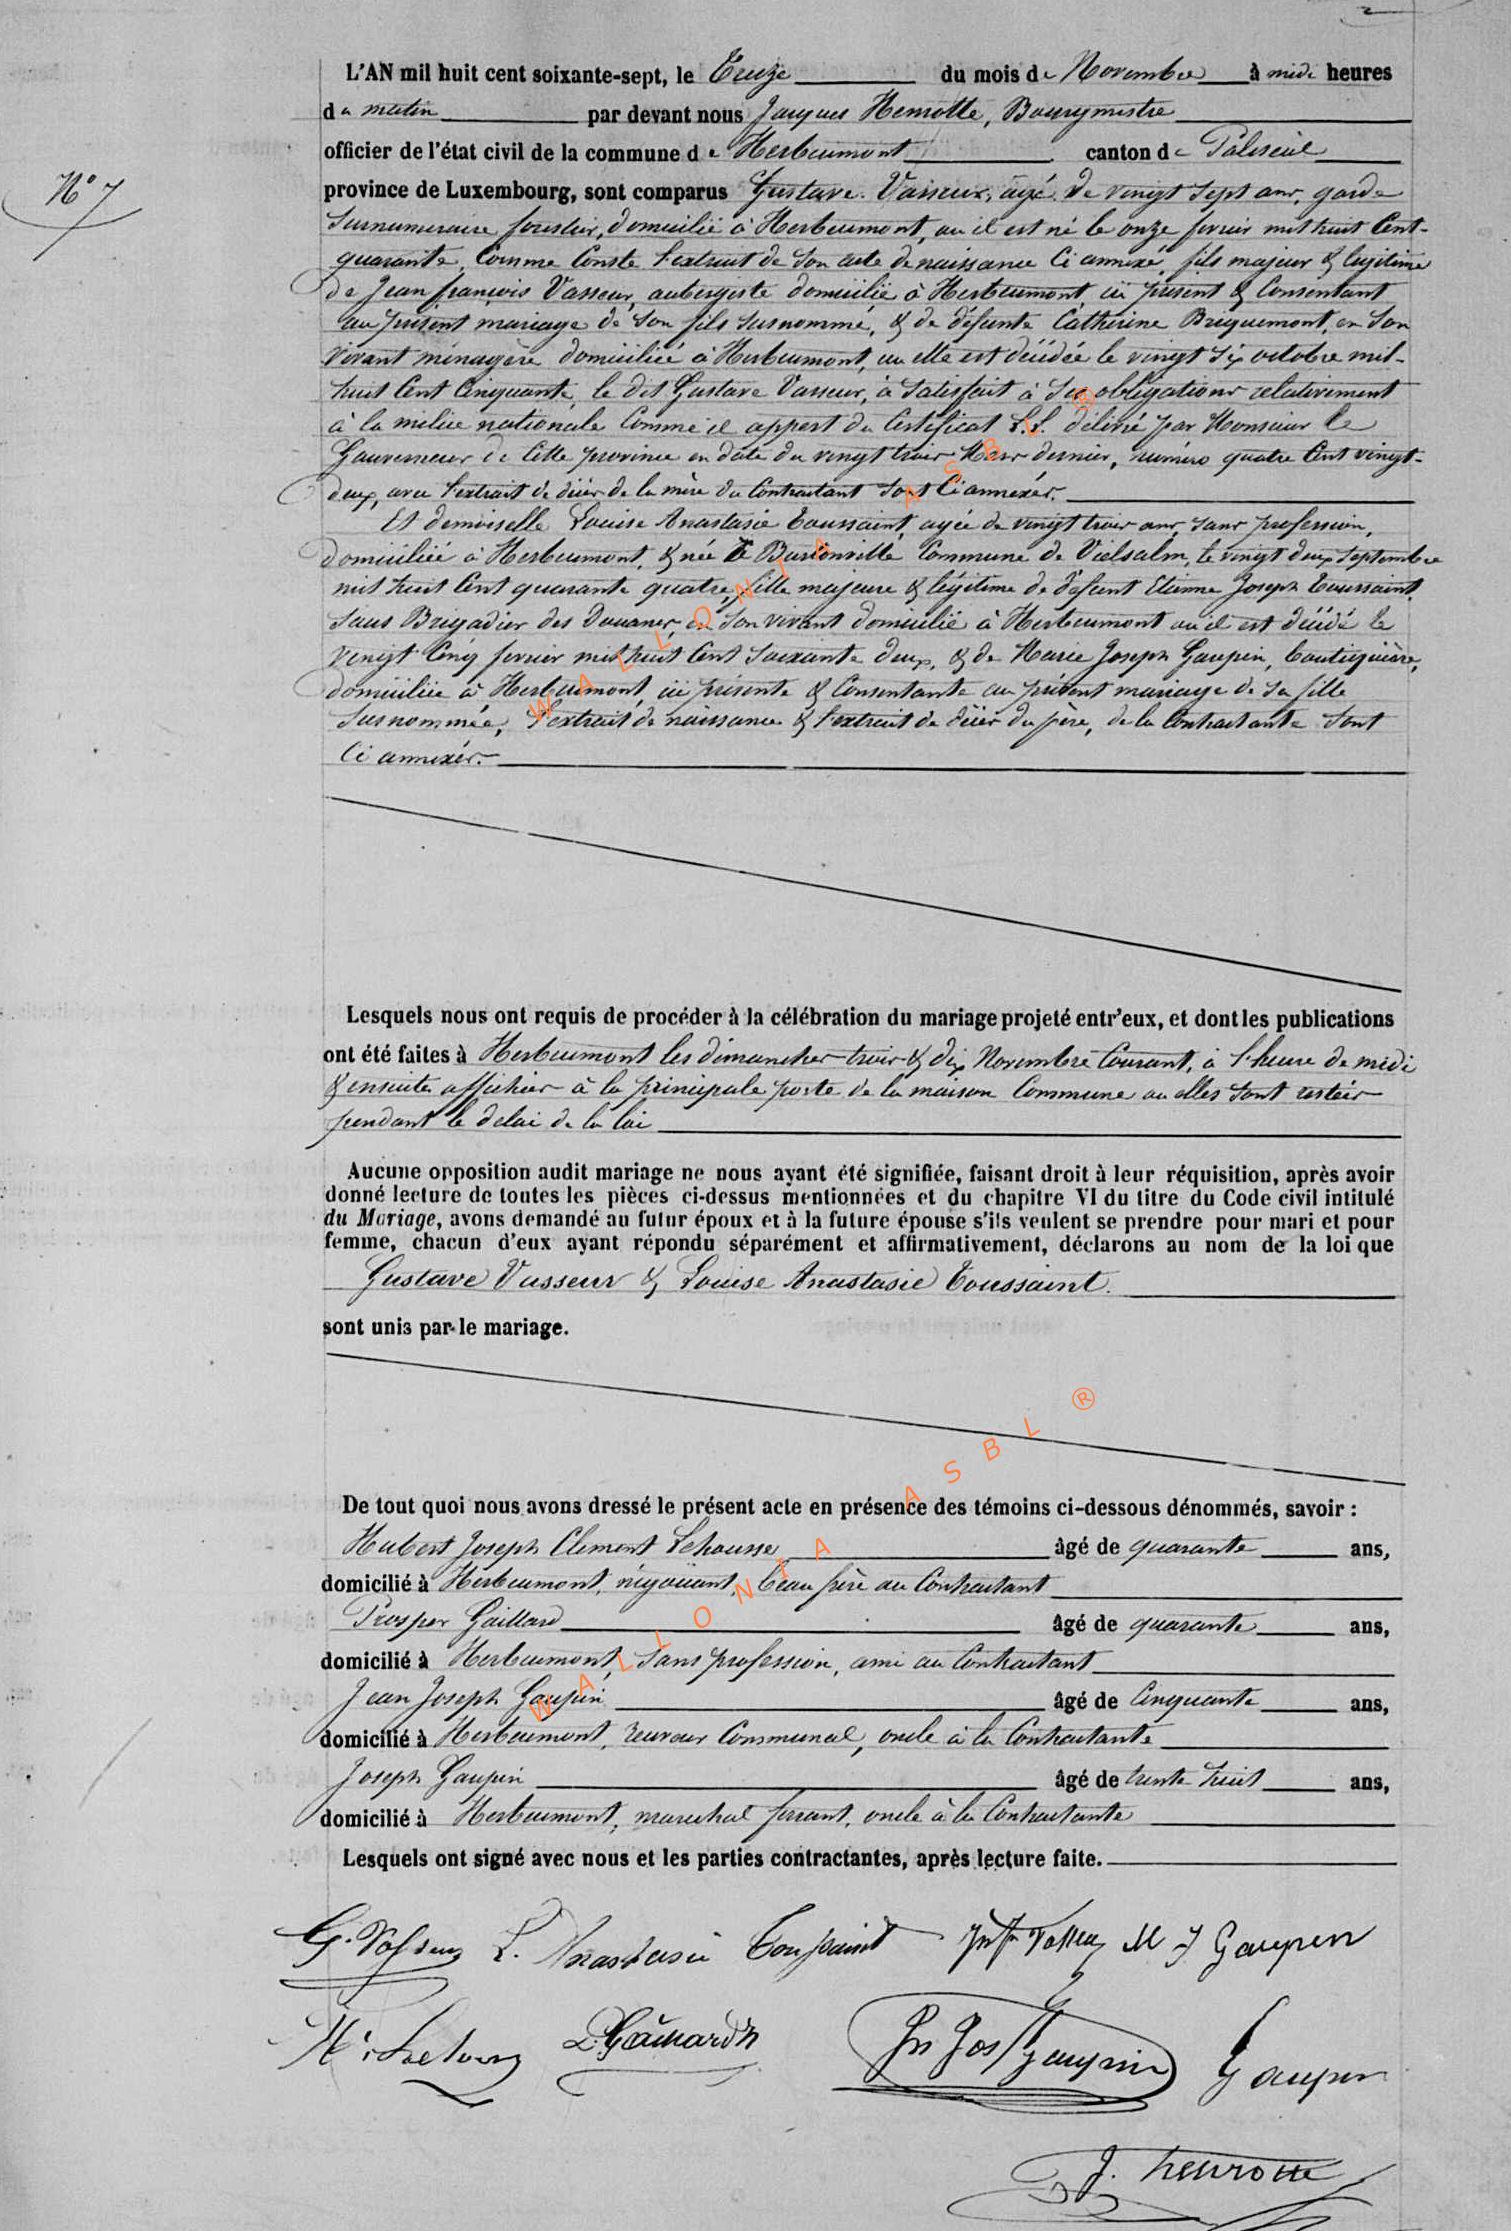 N° 7
L'AN mil huit cent soixante-sept, le Treize du mois de Novembre à midi heures
du matin par devant nous Jacques Henrotte, Bourgmestre
officier de l'état civil de la commune de Herbeumont canton de Paliseul
province de Luxembourg, sont comparus Gustave Vasseur, agé de vingt sept ans, garde
surnumeraire forestier, domicilié à Herbeumont, ou il est né le onze fevrier mil huit Cent-
quarante, Comme Conste l'extrait de son acte de naissance Ci annexé, fils majeur & legitime
de Jean françois Vasseur, aubergiste domicilié à Herbeumont, ici présent & Consentant
au présent mariage de son fils susnommé, & de défunte Catherine Briquemont, en son
vivant ménagère domiciliée à Herbeumont, ou elle est décédée le vingt six octobre mil-
huit Cent Cinquante, le dit Gustave Vasseur, à satisfait à ses obligations relativement
à la milice nationale Comme il appert du Certificat L.L. délivré par Monsieur le
Gouverneur de Cette province en date du vingt trois Mars dernier, numéro quatre Cent vingt-
deux, avec l'extrait de décès de la mère du Contractant sont Ci annexés.
Et demoiselle Louise Anastasie Toussaint, agée de vingt trois ans, sans profession,
domiciliée à Herbeumont, & née à Burtonville Commune de Vielsalm, le vingt deux septembre
mil huit Cent quarante quatre, fille majeure & légitime de défunt Etienne Joseph Toussaint,
sous Brigadier des Douanes, en son vivant domicilié à Herbeumont ou il est décédé le
vingt Cinq fevrier mil huit Cent soixante deux, & de Marie Joseph Gaupin, boutiquière,
domiciliée à Herbeumont, ici présente & Consentante au présent mariage de sa fille
susnommée, l'extrait de naissance & l'extrait de décès du père, de la Contractante sont
Ci annexés.
Lesquels nous ont requis de procéder à la célébration du mariage projeté entr'eux, et dont les publications
ont été faites à Herbeumont les dimanches trois & dix Novembre Courant, à l'heure de midi
& ensuite affichées à la principale porte de la maison Commune ou elles sont restées
pendant le delai de la loi
Aucune opposition audit mariage ne nous ayant été signifiée, faisant droit à leur réquisition, après avoir
donné lecture de toutes les pièces ci-dessus mentionnées et du chapitre VI du titre du Code civil intitulé
du Mariage, avons demandé au futur époux et à la future épouse s'ils veulent se prendre pour mari et pour
femme, chacun d'eux ayant répondu séparément et affirmativement, déclarons au nom de la loi que
Gustave Vasseur & Louise Anastasie Toussaint.
sont unis par le mariage.
De tout quoi nous avons dressé le présent acte en présence des témoins ci-dessous dénommés, savoir :
Hubert Joseph Clement Lehousse âgé de quarante ans,
domicilié à Herbeumont, négociant, beau frère au Contractant
Prosper Gaillard âgé de quarante ans,
domicilié à Herbeumont, sans profession, ami au Contractant
Jean Joseph Gaupin âgé de Cinquante ans,
domicilié à Herbeumont, receveur Communal, oncle à la Contractante
Joseph Gaupin âgé de trente huit ans,
domicilié à Herbeumont, marechal ferrant, oncle à la Contractante
Lesquels ont signé avec nous et les parties contractantes, après lecture faite.
G. Vasseur L. Anastasie Toussaint Jn fs Vasseur M J Gaupin
Jn Jos Gaupin Gaupin
J. henrotte
WALLONIA ASBL ®
WALLONIA ASBL ®